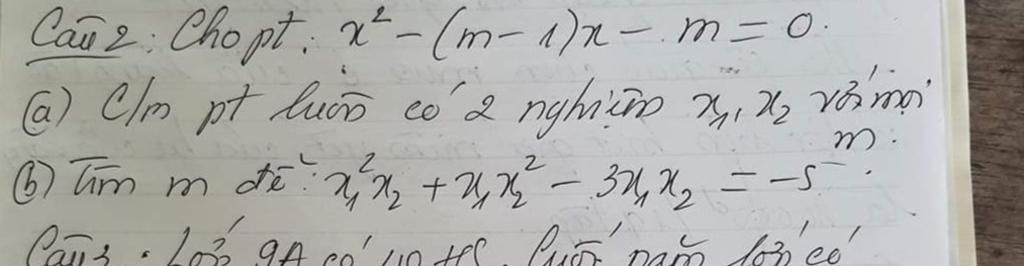 Câu 2: Cho pt: x² - (m - 1)x - m = 0.
(a) C/m pt luôn có 2 nghiệm x₁, x₂ với mọi m.
(b) Tìm m để: x₁²x₂ + x₁x₂² - 3x₁x₂ = -5.
Câu 3: Lớp 9A có 40 HS. Cuối năm lớp có